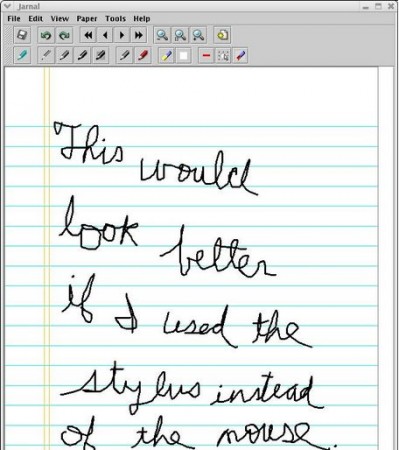 Jarnal
File Edit View Paper Tools Help
This would
look better
if I used the
stylus instead
of the mouse.